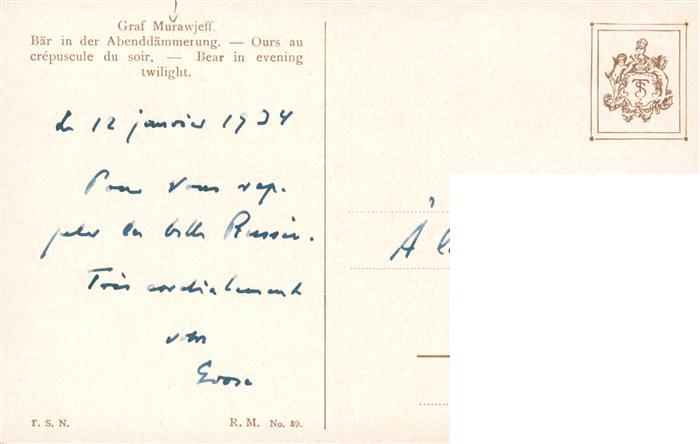 Graf Murawjeff.
Bär in der Abenddämmerung. — Ours au
crépuscule du soir. — Bear in evening
twilight.
le 12 janvier 1934
Pour vous rap-
peler la belle Russie.
Très cordialement
votre
À
T. S. N.
R. M. No. 89.